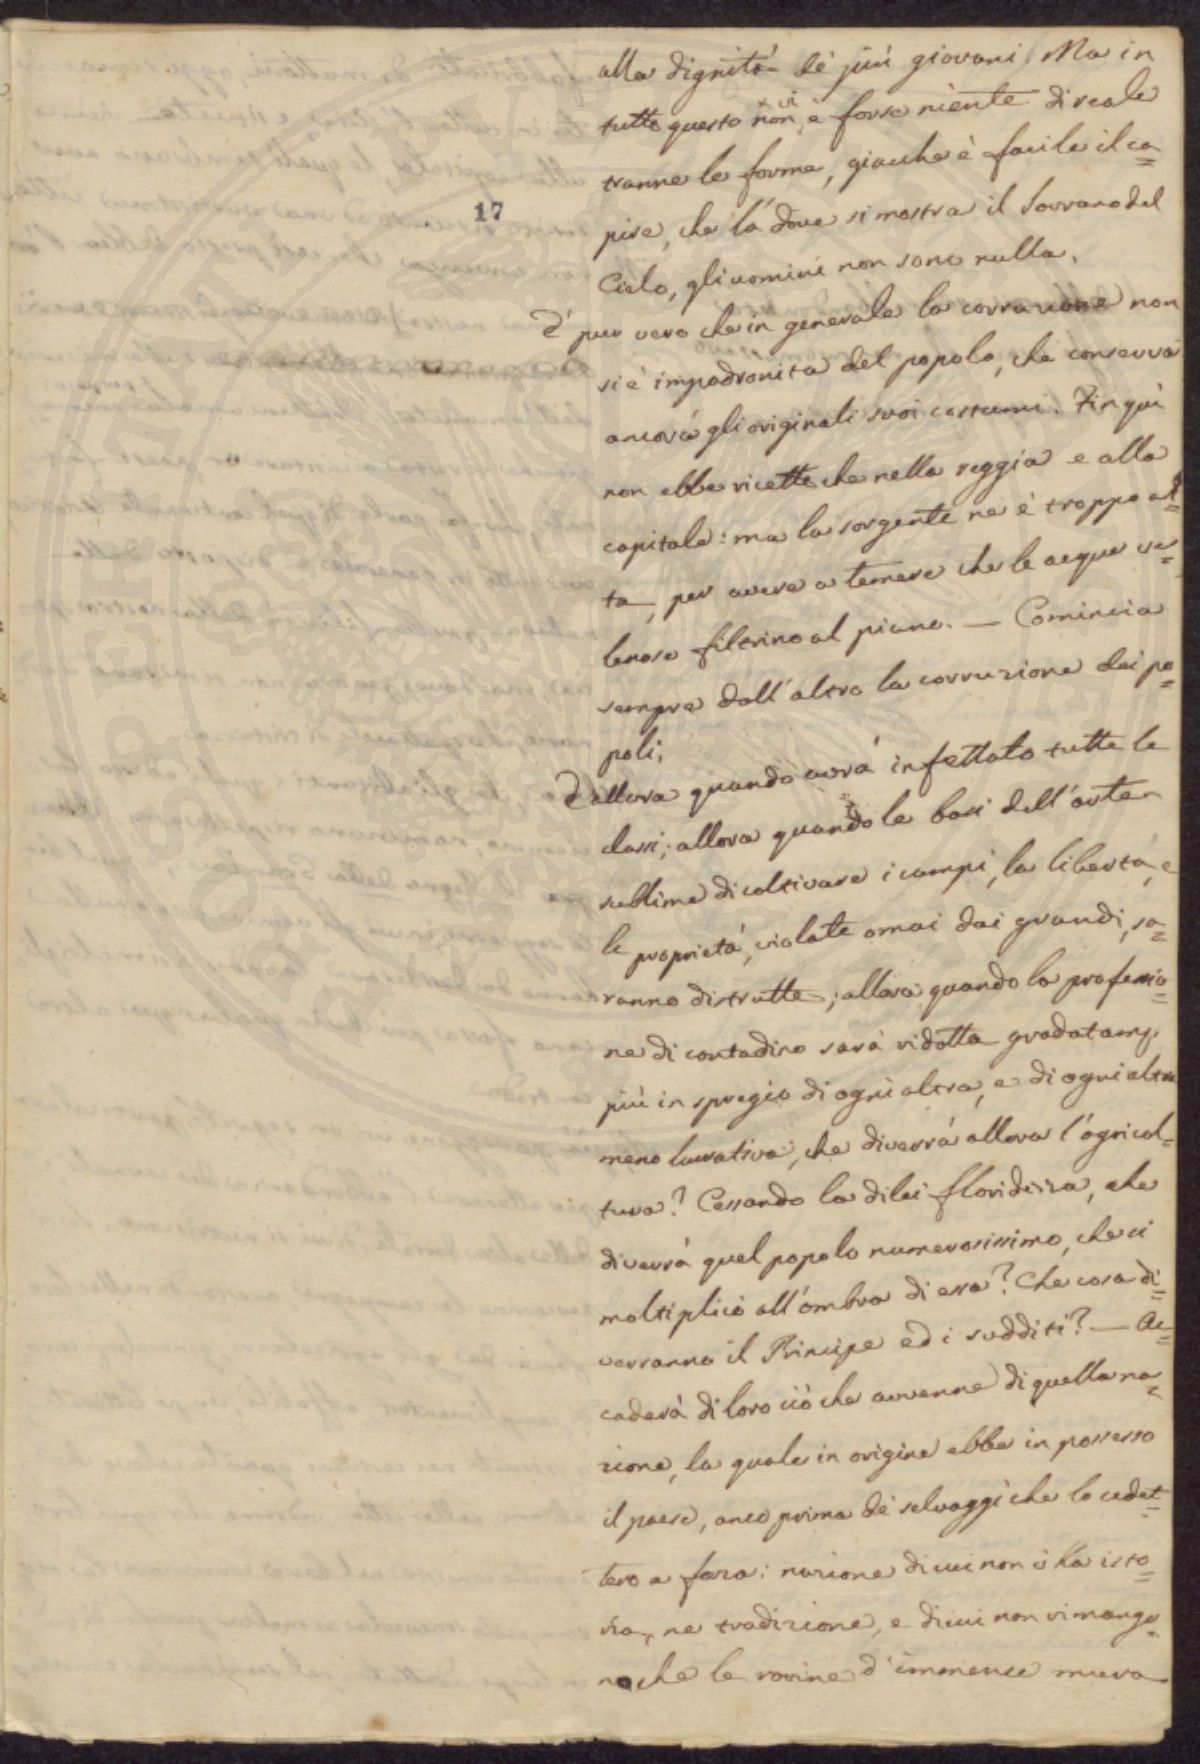 alla dignità de' più giovani. Ma in
tutto questo non vi è forse niente di reale
tranne le forme, giacche è facile il ca=
pire, che là dove si mostra il Sovrano del
Cielo, gli uomini non sono nulla.
17
E' pur vero che in generale la corruzione non
si è impadronita del popolo, che conserva
ancora gli originali suoi costumi. Fin quì
non ebbe ricetto che nella reggia e alla
capitale: ma la sorgente ne è troppo al=
ta, per avere a temere che le acque ve=
lenose filtrino al piano. — Comincia
sempre dall'altro la corruzione dei po=
poli;
E allora quando avrà infettato tutte le
classi; allora quando le basi dell'arte
sublime di coltivare i campi, la libertà, e
le proprietà, violate omai dai grandi, sa=
ranno distrutte; allora quando la professio=
ne di contadino sarà ridotta gradatam.
più in spregio di ogni altra, e di ogni altra
meno lucrativa, che diverrà allora l'agricol=
tura? Cessando la di lei floridezza, che
diverrà quel popolo numerosissimo, che si
moltiplicò all'ombra di essa? Che cosa di=
verranno il Principe ed i sudditi? — Ac=
caderà di loro ciò che avvenne di quella na=
zione, la quale in origine ebbe in possesso
il paese, anco prima de' selvaggi che lo cedet=
tero a forza: nazione di cui non v'ha isto=
ria, ne tradizione, e di cui non rimango=
no che le rovine d'immense mura